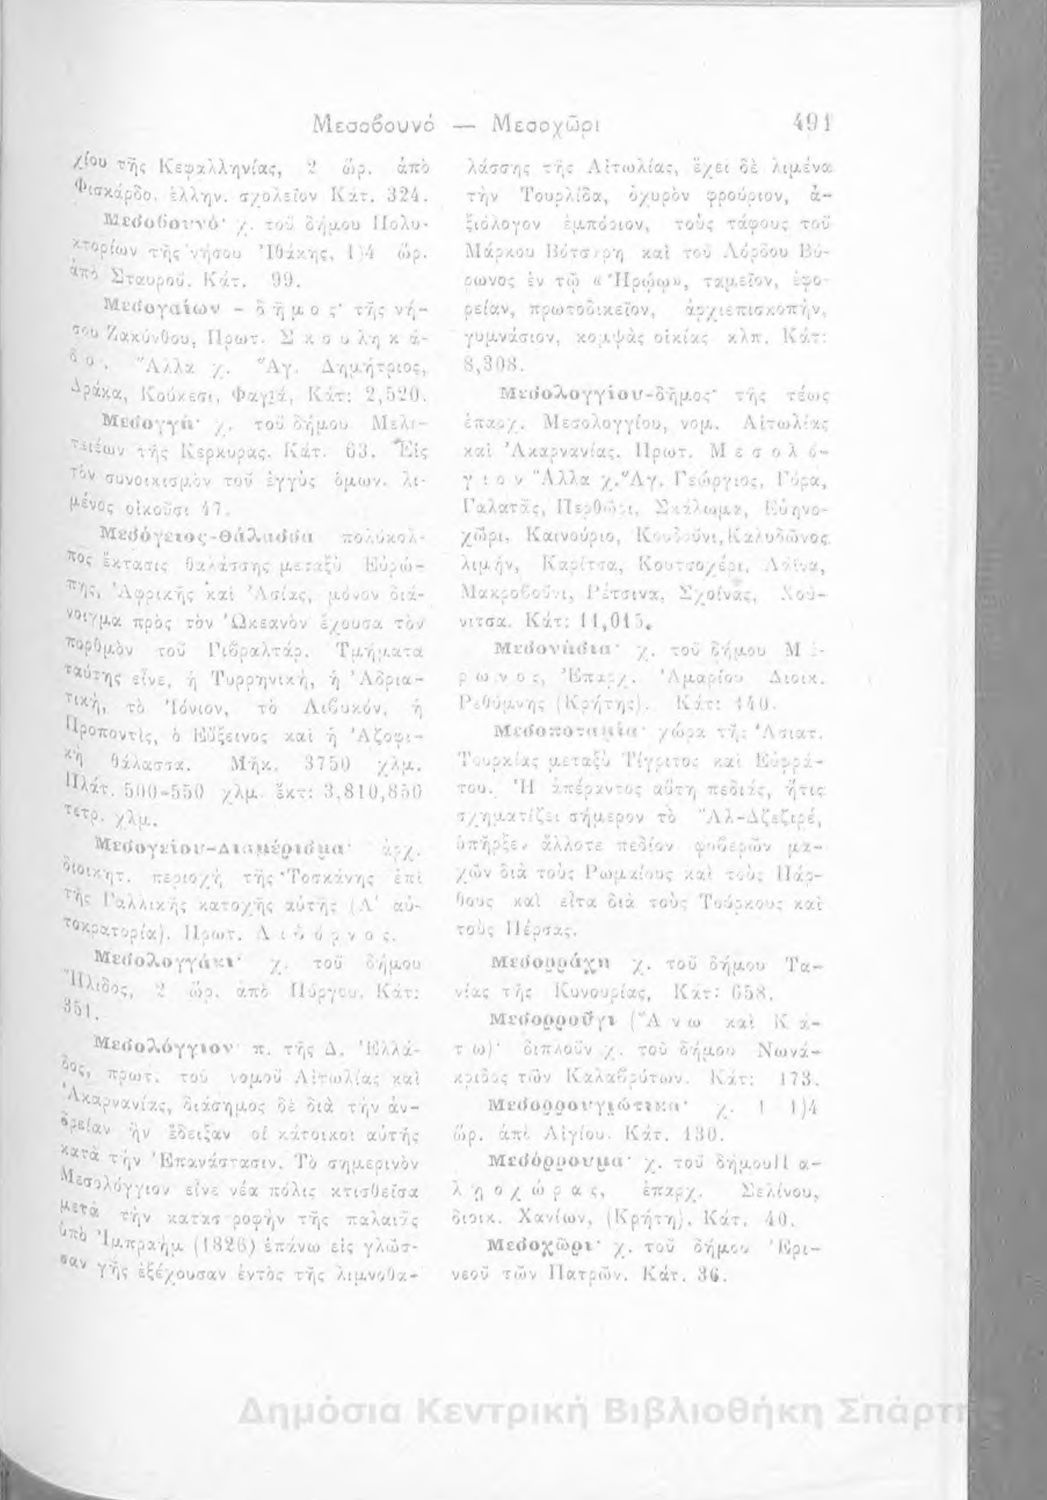 Μεσοβουνό — Μεσοχῶρι 491
χίου τῆς Κεφαλληνίας, 2 ὡρ. ἀπὸ
Φισκάρδο, ἑλλην. σχολεῖον Κάτ. 324.
Μεσοβουνό· χ. τοῦ δήμου Πολυ-
κτορίων τῆς νήσου Ἰθάκης, 1)4 ὡρ.
ἀπὸ Σταυροῦ. Κάτ. 99.
Μεσογαίων - δῆμος· τῆς νή-
σου Ζακύνθου, Πρωτ. Σκουληκά-
δο. Ἄλλα χ. Ἁγ. Δημήτριος,
Δράκα, Κούκεσι, Φαγιά, Κάτ: 2,520.
Μεσογγή· χ. τοῦ δήμου Μελι-
τειέων τῆς Κερκύρας. Κάτ. 63. Εἰς
τὸν συνοικισμὸν τοῦ ἐγγὺς ὁμων. λι-
μένος οἰκοῦσι 47.
Μεσόγειος-Θάλασσα πολύκολ-
πος ἔκτασις θαλάσσης μεταξὺ Εὐρώ-
πης, Ἀφρικῆς καὶ Ἀσίας, μόνον διά-
νοιγμα πρὸς τὸν Ὠκεανὸν ἔχουσα τὸν
πορθμὸν τοῦ Γιβραλτάρ. Τμήματα
ταύτης εἶνε, ἡ Τυρρηνική, ἡ Ἀδρια-
τική, τὸ Ἰόνιον, τὸ Λιβυκόν, ἡ
Προποντὶς, ὁ Εὔξεινος καὶ ἡ Ἀζοφι-
κὴ θάλασσα. Μῆκ. 3750 χλμ.
Πλάτ. 500-550 χλμ. ἔκτ: 3,810,850
τετρ. χλμ.
Μεσογείου-Διαμέρισμα· ἀρχ.
διοικητ. περιοχὴ τῆς Τοσκάνης ἐπὶ
τῆς Γαλλικῆς κατοχῆς αὐτῆς (Α' αὐ-
τοκρατορία). Πρωτ. Λιβόρνος.
Μεσολογγάκι· χ. τοῦ δήμου
Ἤλιδος, 2 ὡρ. ἀπὸ Πύργου. Κάτ:
351.
Μεσολόγγιον· π. τῆς Δ. Ἑλλά-
δος, πρωτ. τοῦ νομοῦ Αἰτωλίας καὶ
Ἀκαρνανίας, διάσημος δὲ διὰ τὴν ἀν-
δρείαν ἣν ἔδειξαν οἱ κάτοικοι αὐτῆς
κατὰ τὴν Ἐπανάστασιν. Τὸ σημερινὸν
Μεσολόγγιον εἶνε νέα πόλις κτισθεῖσα
μετὰ τὴν καταστροφὴν τῆς παλαιᾶς
ὑπὸ Ἰμπραὴμ (1826) ἐπάνω εἰς γλῶσ-
σαν γῆς ἐξέχουσαν ἐντὸς τῆς λιμνοθα-
λάσσης τῆς Αἰτωλίας, ἔχει δὲ λιμένα
τὴν Τουρλίδα, ὀχυρὸν φρούριον, ἀ-
ξιόλογον ἐμπόριον, τοὺς τάφους τοῦ
Μάρκου Βότσαρη καὶ τοῦ Λόρδου Βύ-
ρωνος ἐν τῷ «Ἡρῴῳ», ταμεῖον, ἐφο-
ρείαν, πρωτοδικεῖον, ἀρχιεπισκοπήν,
γυμνάσιον, κομψὰς οἰκίας κλπ. Κάτ:
8,308.
Μεσολογγίου-δῆμος· τῆς τέως
ἐπαρχ. Μεσολογγίου, νομ. Αἰτωλίας
καὶ Ἀκαρνανίας. Πρωτ. Μεσολό-
γιον Ἄλλα χ. Ἁγ. Γεώργιος, Γύρα,
Γαλατᾶς, Περθῶρι, Σκάλωμα, Εὐηνο-
χῶρι, Καινούριο, Κουδοῦνι, Καλυδῶνος
λιμήν, Καρίτσα, Κουτσοχέρι, Λαΐνα,
Μακροβοῦνι, Ρέτσινα, Σχοίνας, Χού-
νιτσα. Κάτ: 11,015.
Μεσονήσια· χ. τοῦ δήμου Μέ-
ρωνος, Ἐπαρχ. Ἀμαρίου Διοικ.
Ρεθύμνης (Κρήτης). Κάτ: 140.
Μεσοποταμία· χώρα τῆς Ἀσιατ.
Τουρκίας μεταξὺ Τίγριτος καὶ Εὐφρά-
του. Ἡ ἀπέραντος αὕτη πεδιάς, ἥτις
σχηματίζει σήμερον τὸ Ἀλ-Δζεζιρέ,
ὑπῆρξεν ἄλλοτε πεδίον φοβερῶν μα-
χῶν διὰ τοὺς Ρωμαίους καὶ τοὺς Πάρ-
θους καὶ εἶτα διὰ τοὺς Τούρκους καὶ
τοὺς Πέρσας.
Μεσορράχη χ. τοῦ δήμου Τα-
νίας τῆς Κυνουρίας, Κάτ: 658.
Μεσορροῦγι (Ἄνω καὶ Κά-
τω)· διπλοῦν χ. τοῦ δήμου Νωνά-
κριδος τῶν Καλαβρύτων. Κάτ: 173.
Μεσορρουγιώτικα· χ. 1 1)4
ὡρ. ἀπὸ Αἰγίου. Κάτ. 130.
Μεσόρρουμα· χ. τοῦ δήμου Πα-
ληοχώρας, ἐπαρχ. Σελίνου,
διοικ. Χανίων, (Κρήτη). Κάτ. 40.
Μεσοχῶρι· χ. τοῦ δήμου Ἐρι-
νεοῦ τῶν Πατρῶν. Κάτ. 36.
Δημόσια Κεντρική Βιβλιοθήκη Σπάρτης